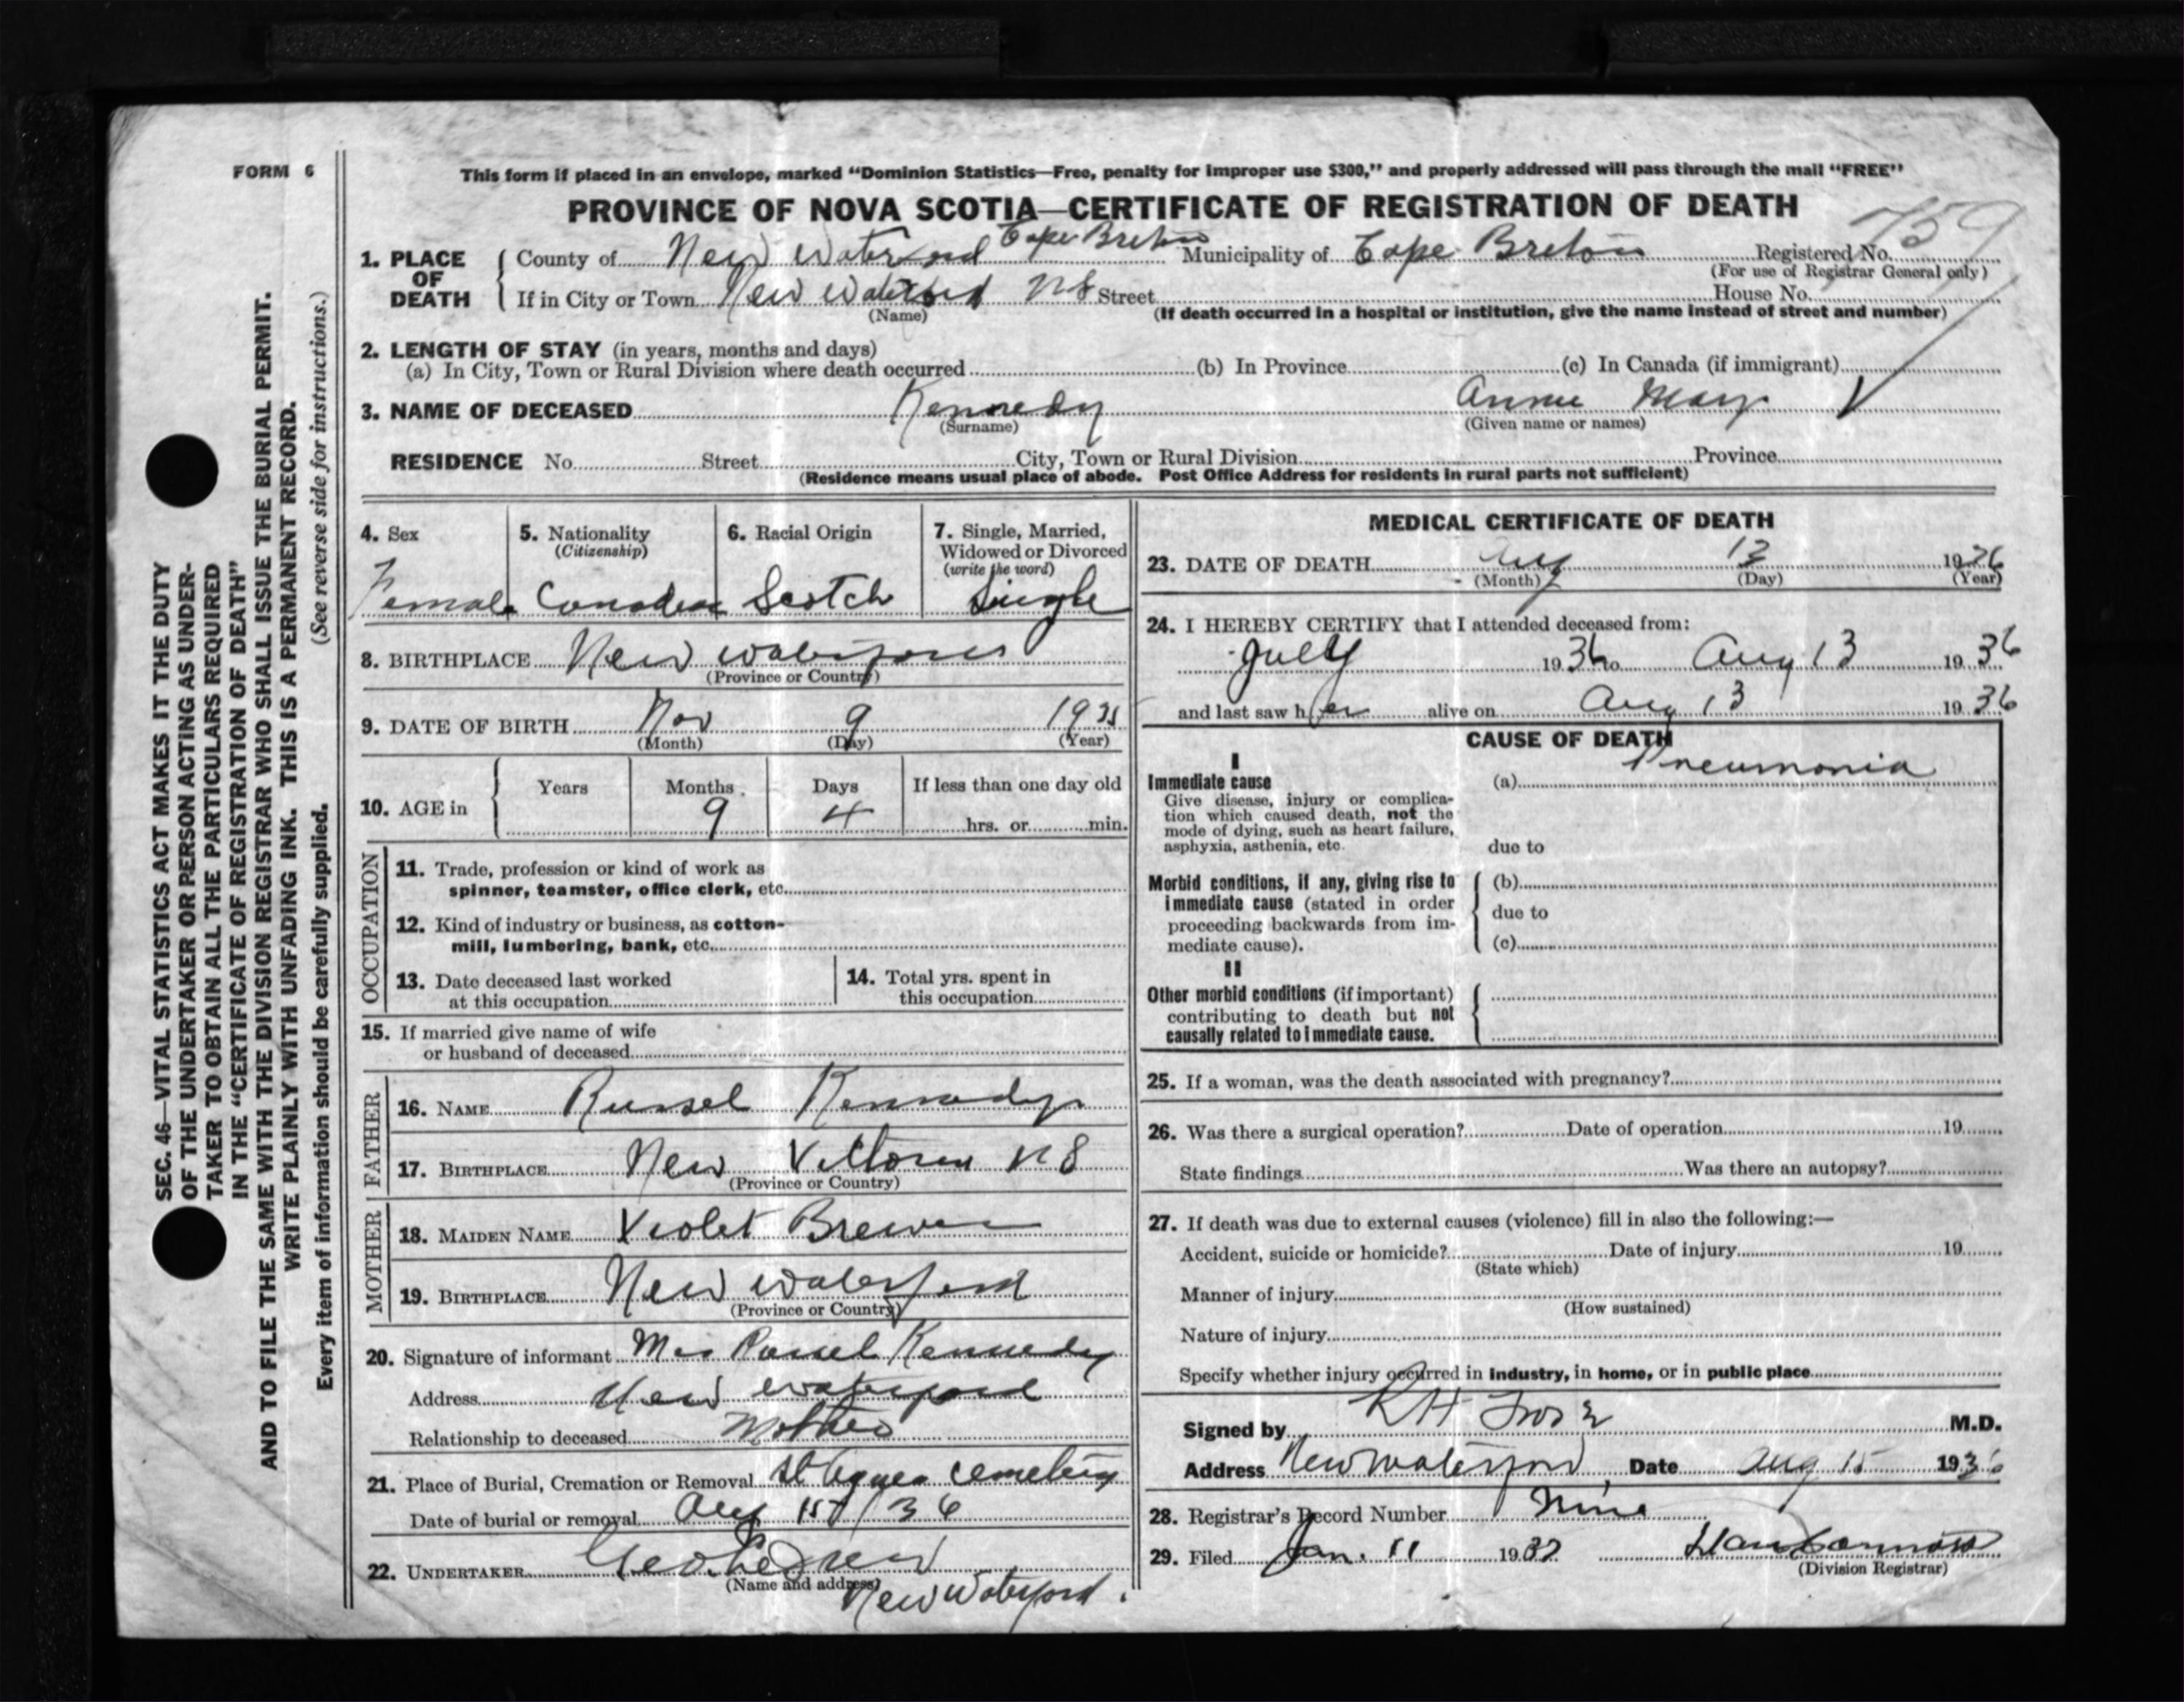 FORM 6
This form if placed in an envelope, marked “Dominion Statistics—Free, penalty for improper use $300,” and properly addressed will pass through the mail “FREE”
PROVINCE OF NOVA SCOTIA—CERTIFICATE OF REGISTRATION OF DEATH
759
1. PLACE OF DEATH
County of New Waterford Cape Breton Municipality of Cape Breton Registered No.
(For use of Registrar General only)
If in City or Town New Waterford NS Street House No.
(Name) (If death occurred in a hospital or institution, give the name instead of street and number)
2. LENGTH OF STAY (in years, months and days)
(a) In City, Town or Rural Division where death occurred (b) In Province (c) In Canada (if immigrant)
3. NAME OF DECEASED Kennedy Annie May
(Surname) (Given name or names)
RESIDENCE No. Street City, Town or Rural Division Province
(Residence means usual place of abode. Post Office Address for residents in rural parts not sufficient)
4. Sex
Female
5. Nationality
(Citizenship)
Canadian
6. Racial Origin
Scotch
7. Single, Married,
Widowed or Divorced
(write the word)
Single
8. BIRTHPLACE New Waterford
(Province or Country)
9. DATE OF BIRTH Nov 9
(Month) (Day) (Year)
10. AGE in Years Months Days If less than one day old
9 4 hrs. or min.
OCCUPATION
11. Trade, profession or kind of work as
spinner, teamster, office clerk, etc.
12. Kind of industry or business, as cotton-
mill, lumbering, bank, etc.
13. Date deceased last worked
at this occupation
14. Total yrs. spent in
this occupation
15. If married give name of wife
or husband of deceased
FATHER
16. NAME Russel Kennedy
17. BIRTHPLACE New Victoria NS
(Province or Country)
MOTHER
18. MAIDEN NAME Violet Brewer
19. BIRTHPLACE New Waterford
(Province or Country)
20. Signature of informant Mrs Russel Kennedy
Address New Waterford
Relationship to deceased Mother
21. Place of Burial, Cremation or Removal St Agnes Cemetery
Date of burial or removal Aug 15 / 36
22. UNDERTAKER
(Name and address)
New Waterford.
MEDICAL CERTIFICATE OF DEATH
23. DATE OF DEATH Aug 13 1936
(Month) (Day) (Year)
24. I HEREBY CERTIFY that I attended deceased from:
July 1936 to Aug 13 1936
and last saw her alive on Aug 13 1936
CAUSE OF DEATH
I
Immediate cause (a) Pneumonia
Give disease, injury or complica-
tion which caused death, not the
mode of dying, such as heart failure,
asphyxia, asthenia, etc.
due to
Morbid conditions, if any, giving rise to
immediate cause (stated in order
proceeding backwards from im-
mediate cause).
(b)
due to
(c)
II
Other morbid conditions (if important)
contributing to death but not
causally related to immediate cause.
25. If a woman, was the death associated with pregnancy?
26. Was there a surgical operation? Date of operation 19
State findings Was there an autopsy?
27. If death was due to external causes (violence) fill in also the following:—
Accident, suicide or homicide? Date of injury 19
(State which)
Manner of injury
(How sustained)
Nature of injury
Specify whether injury occurred in industry, in home, or in public place
Signed by R H M.D.
Address New Waterford, Date Aug 15 1936
28. Registrar's Record Number Nine
29. Filed Jan. 11 1937
(Division Registrar)
SEC. 46—VITAL STATISTICS ACT MAKES IT THE DUTY
OF THE UNDERTAKER OR PERSON ACTING AS UNDER-
TAKER TO OBTAIN ALL THE PARTICULARS REQUIRED
IN THE “CERTIFICATE OF REGISTRATION OF DEATH”
AND TO FILE THE SAME WITH THE DIVISION REGISTRAR WHO SHALL ISSUE THE BURIAL PERMIT.
WRITE PLAINLY WITH UNFADING INK. THIS IS A PERMANENT RECORD.
Every item of information should be carefully supplied. (See reverse side for instructions.)